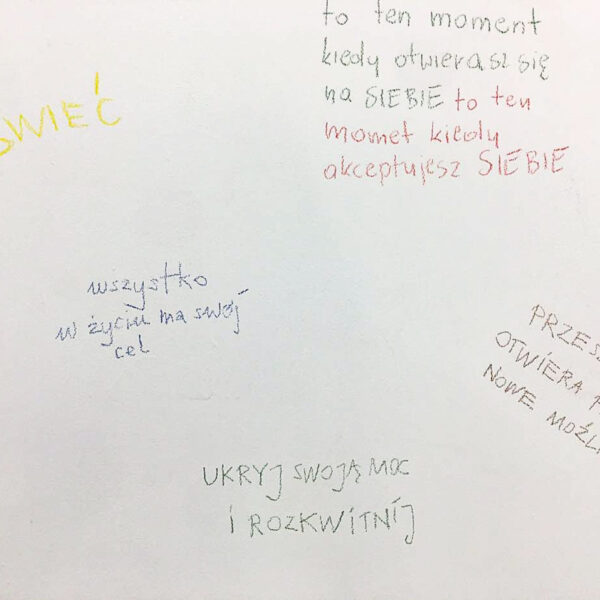 to ten moment
kiedy otwierasz się
na SIEBIE to ten
momet kiedy
akceptujesz SIEBIE
wszystko
w życiu ma swój
cel
OTWIERA
NOWE
UKRYJ SWOJĄ MOC
i ROZKWITNIJ